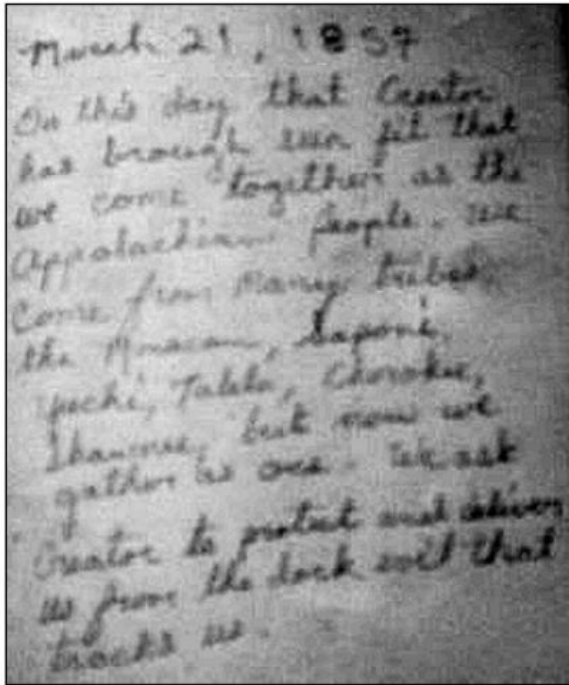 March 21, 1857
On this day that Creator
has brough sun fit that
we come together as the
Appalachian people. we
Come from Many tribes,
the Monacan, Saponi,
Yuchi, Cherokee,
Shawnee, but now we
gather as one. We ask
Creator to protect and deliver
us from the dark evil that
tracks us.